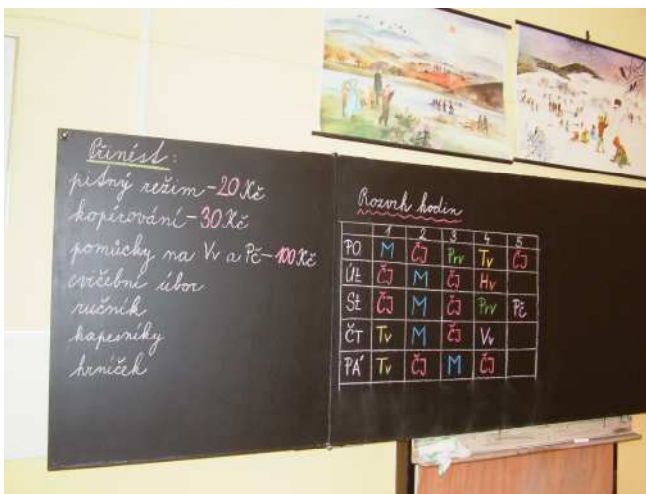 Přinést:
pitný režim - 20 Kč
kopírování - 30 Kč
pomůcky na Vv a Pč - 100 Kč
cvičební úbor
ručník
kapesníky
hrníček
Rozvrh hodin
1 2 3 4 5
PO M ČJ Prv Tv ČJ
ÚT ČJ M ČJ Hv
ST ČJ M ČJ Prv Pč
ČT Tv M ČJ Vv
PÁ Tv ČJ M ČJ